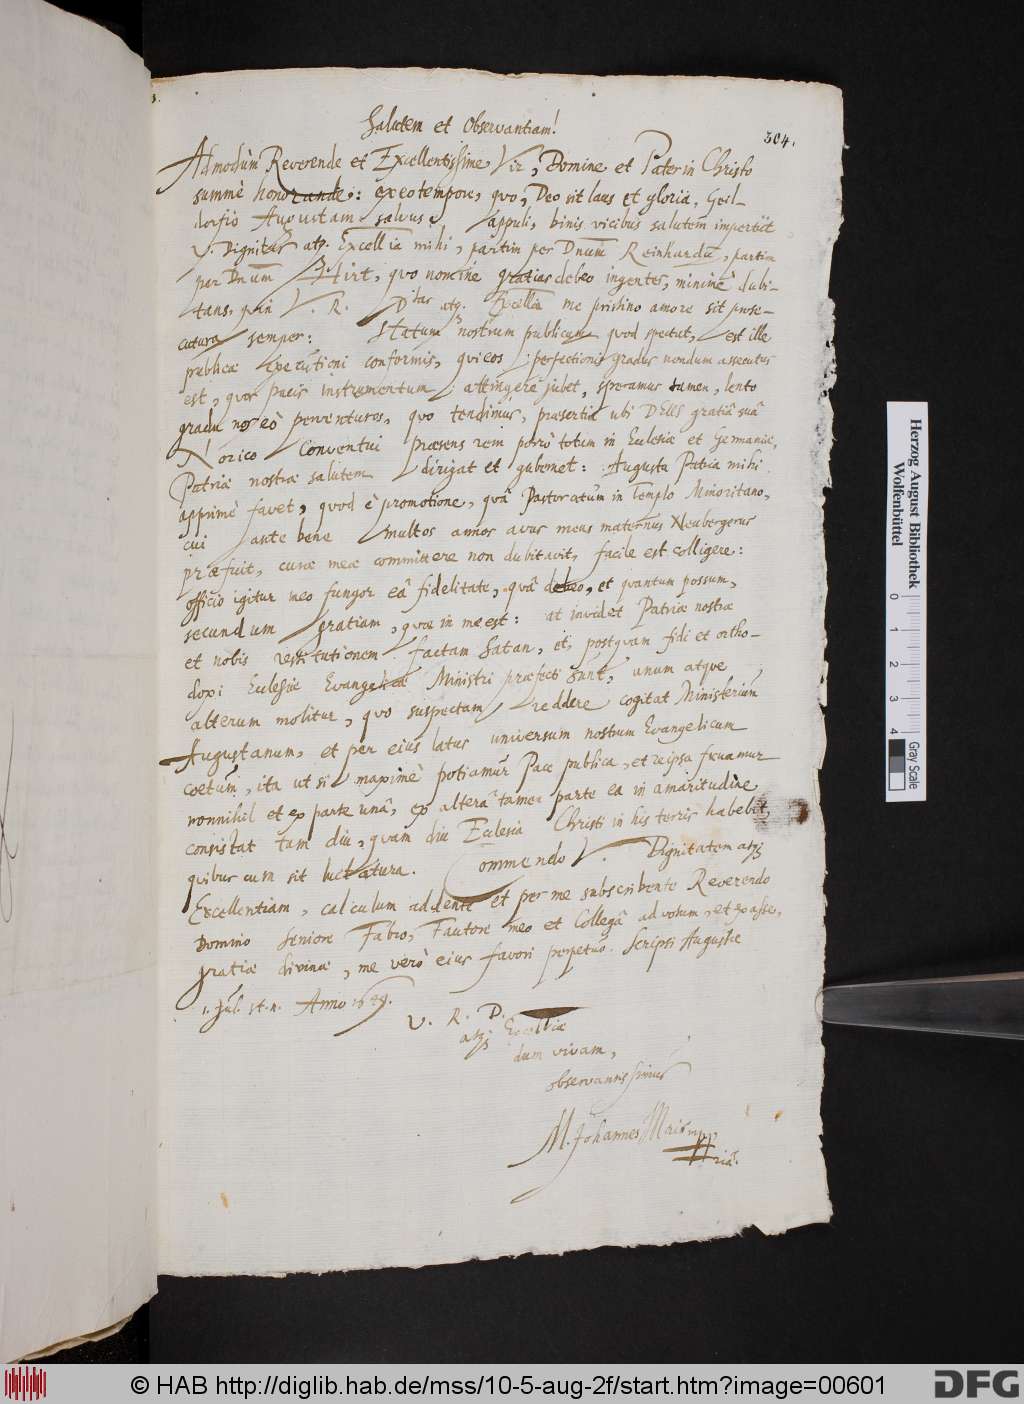 304.
Salutem et Observantiam!
Admodùm Reverende et Excellentissime Vir, Domine et Pater in Christo
summè honorande: ex eo tempore, quo, Deo sit laus et gloria, Geil-
dorfio Augustam salvus appuli, binis vicibus salutem impertiit
V. Dignitas atq. Excellia mihi, partim per Dnum Reinhardu, partim
per Dnum Hirt, quo nomine gratias debeo ingentes, minimè dubi-
tans, quin V. R. Ditas atq. Excellia me pristino amore sit prose-
cutura semper: Statum nostrum publicum quod spectat, est ille
publicæ Executioni conformis, qui eos perfectionis gradus nondum assecutus
est, quos pacis instrumentum attingere jubet, speramus tamen, lento
gradu nos eò perventuros, quo tendimus, præsertim ubi DEUS gratiâ suâ
Norico Conventui præsens rem porrò totam in Eclesiæ et Germaniæ,
Patriæ nostræ salutem dirigat et gubernet: Augusta Patria mihi
apprimè favet, quod è promotione, quâ Pastoratum in Templo Minoritano,
cui ante bene multos annos avus meus maternus Neubergerus
præfuit, curæ meæ committere non dubitavit, facile est colligere:
officio igitur meo fungor eâ fidelitate, quâ debeo, et quantum possum,
secundum gratiam, quæ in me est: at invidet Patriæ nostræ
et nobis restitutionem factam Satan, et, postquam fidi et ortho-
doxi Eclesiæ Evangelicæ Ministri præfecti sunt, unum atque
alterum molitur, quo suspectam reddere cogitat Ministerium
Augustanum, et per eius latus universum nostrum Evangelicum
coetum, ita ut si maximè potiamur Pace publica, et reipsa fruamur
nonnihil et ex parte unâ, ex alterâ tamen parte ea in amaritudine
consistat tam diu, quam diu Eclesia Christi in his terris habebit,
quibuscum sit luctatura. Commendo V. Dignitatem atq
Excellentiam, calculum addente et per me subscribente Reverendo
Domino Seniore Fabro, Fautore meo et Collegâ ad votum, et ex asse,
gratiæ divinæ, me verò eius favori perpetuo. Scripsi Augustæ
1. Jul. st. n. Anno 1649.
V. R. D.
atq Excelliæ
dum vivam,
observantissimus
M. Johannes
Herzog August Bibliothek
Wolfenbüttel
0 1 2 3 4
Gray Scale
© HAB http://diglib.hab.de/mss/10-5-aug-2f/start.htm?image=00601
DFG